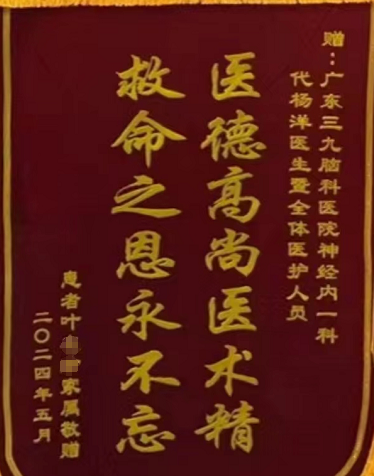 赠：广东三九脑科医院神经内一科
代杨洋医生暨全体医护人员
医德高尚医术精
救命之恩永不忘
患者叶家属敬赠
二〇二四年五月